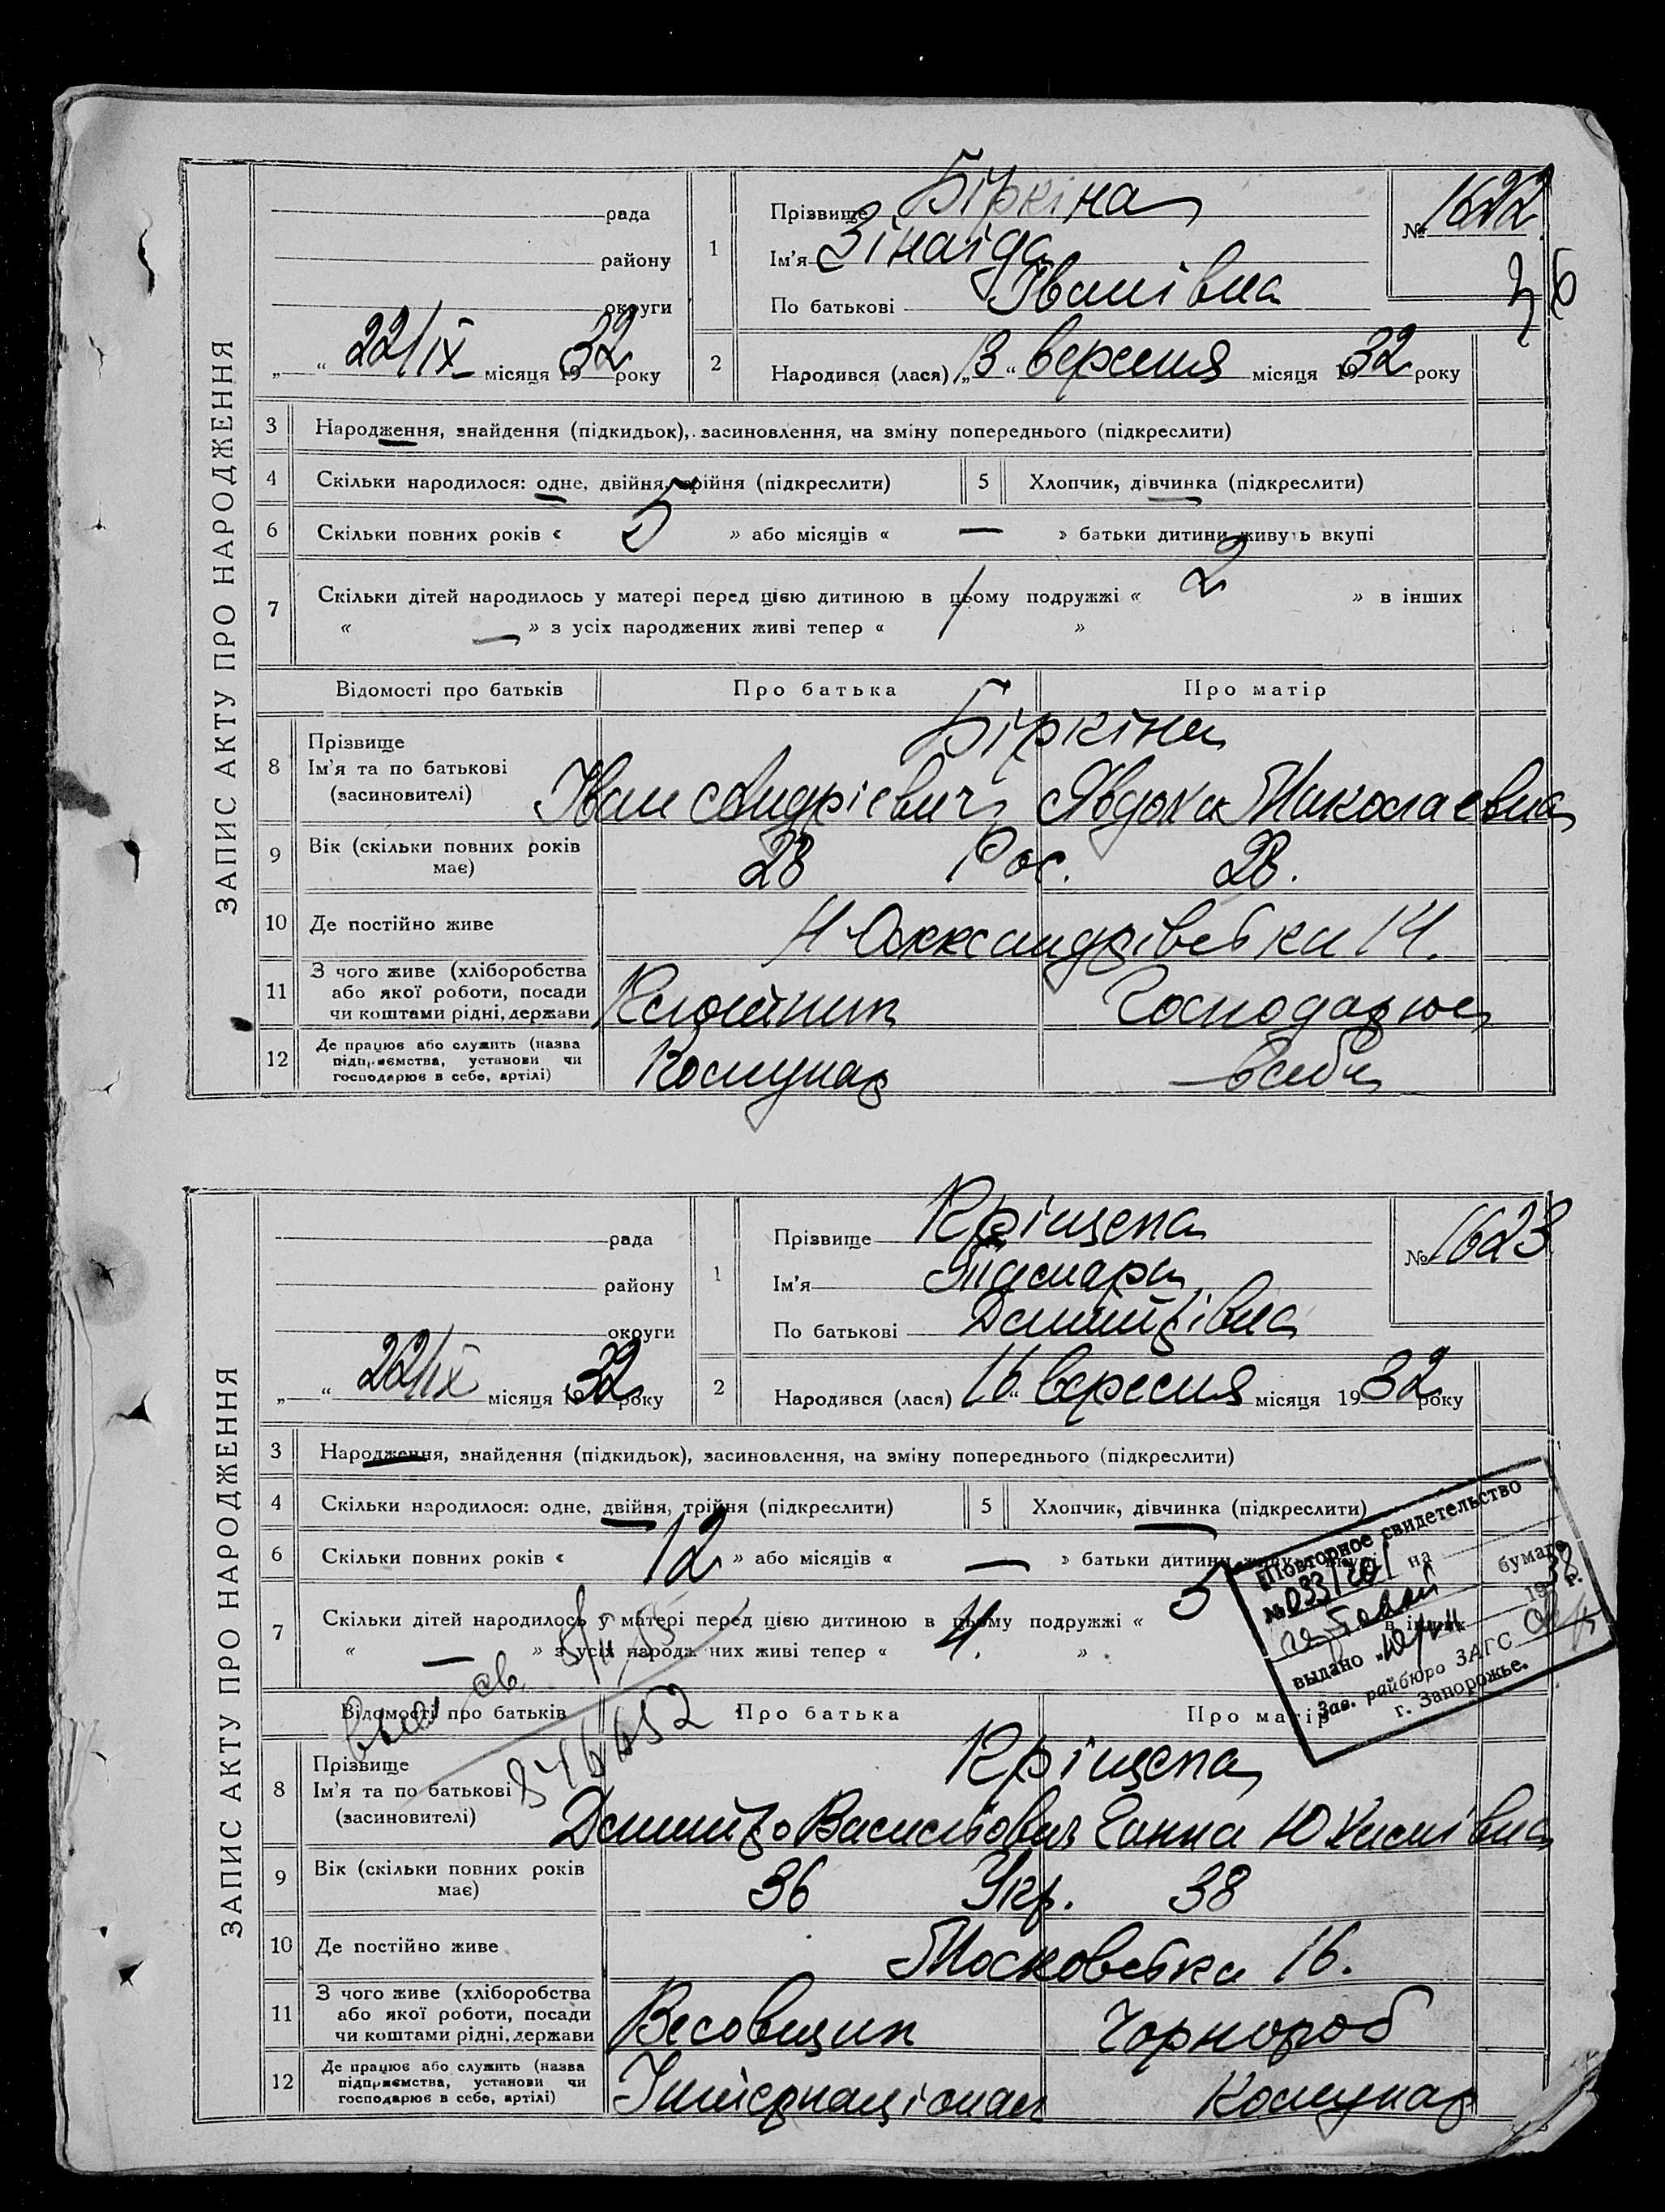 ЗАПИС АКТУ ПРО НАРОДЖЕННЯ
рада
району
округи
„ “ 22/IX місяця 1932 року
1
Прізвище Біркіна
Ім'я Зінаіда
По батькові Іванівна
№ 1622
2
Народився (лася) „13“ вересня місяця 1932 року
3 Народження, знайдення (підкидьок), засиновлення, на зміну попереднього (підкреслити)
4 Скільки народилося: одне, двійня, трійня (підкреслити) 5 Хлопчик, дівчинка (підкреслити)
6 Скільки повних років « 5 » або місяців « — » батьки дитини живуть вкупі
7 Скільки дітей народилось у матері перед цією дитиною в цьому подружжі « 2 » в інших
« — » з усіх народжених живі тепер « 1 »
Відомості про батьків Про батька Про матір
8 Прізвище Ім'я та по батькові (засиновителі)
Біркіна
Іван Андрієвич Явдоха Николаевна
9 Вік (скільки повних років має) 28 Рос. 28.
10 Де постійно живе Н-Олександрівська 14.
11 З чого живе (хліборобства або якої роботи, посади чи коштами рідні, держави Господарює
12 Де працює або служить (назва підприємства, установи чи господарює в себе, артілі) Комунар в себе
ЗАПИС АКТУ ПРО НАРОДЖЕННЯ
рада
району
округи
„ “ 22/IX місяця 1932 року
1
Прізвище Кріщепа
Ім'я Тамара
По батькові Дмитрівна
№ 1623
2
Народився (лася) 16“ вересня місяця 1932 року
3 Народження, знайдення (підкидьок), засиновлення, на зміну попереднього (підкреслити)
4 Скільки народилося: одне, двійня, трійня (підкреслити) 5 Хлопчик, дівчинка (підкреслити)
6 Скільки повних років « 12 » або місяців « — » батьки дитини живуть вкупі
7 Скільки дітей народилось у матері перед цією дитиною в цьому подружжі « 5 » в інших
« — » з усіх народжених живі тепер « 4. »
Повторное свидетельство
№ на бумаге
выдано „ 1938 г.
Зав. райбюро ЗАГС
г. Запорожье.
Відомості про батьків Про батька Про матір
8 Прізвище Ім'я та по батькові (засиновителі)
Кріщепа
Дмитро Васильович Ганна Юхимівна
9 Вік (скільки повних років має) 36 Укр. 38
10 Де постійно живе Московська 16.
11 З чого живе (хліборобства або якої роботи, посади чи коштами рідні, держави Весовщик Чорнороб
12 Де працює або служить (назва підприємства, установи чи господарює в себе, артілі) Інтернаціонал Комунар